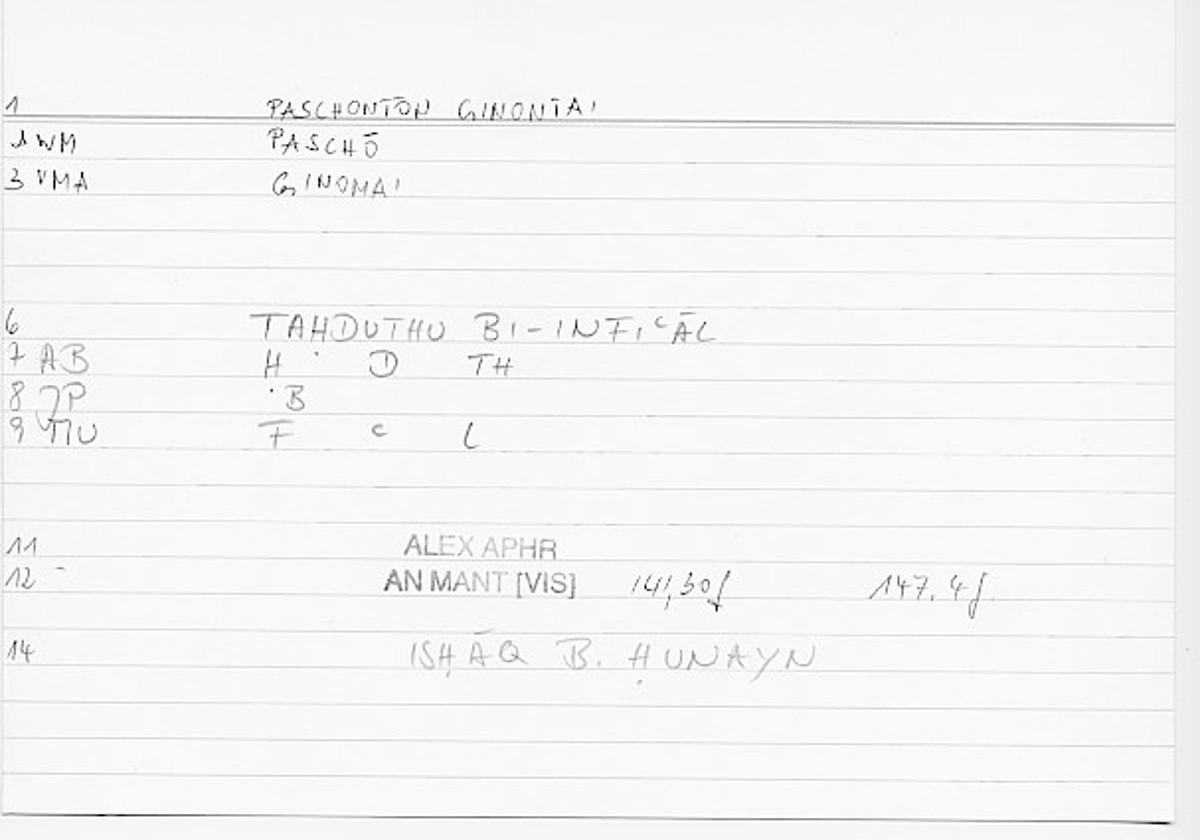 1 PASCHONTŌN GINONTAI
1 WM PASCHŌ
3 VMA GINOMAI
6 TAḤDUTHU BI-INFIʿĀL
7 AB Ḥ D TH
8 JP B
9 TIU F ʿ L
11 ALEX APHR
12 - AN MANT [VIS] 141,30f 147.4f.
14 ISḤĀQ B. ḤUNAYN